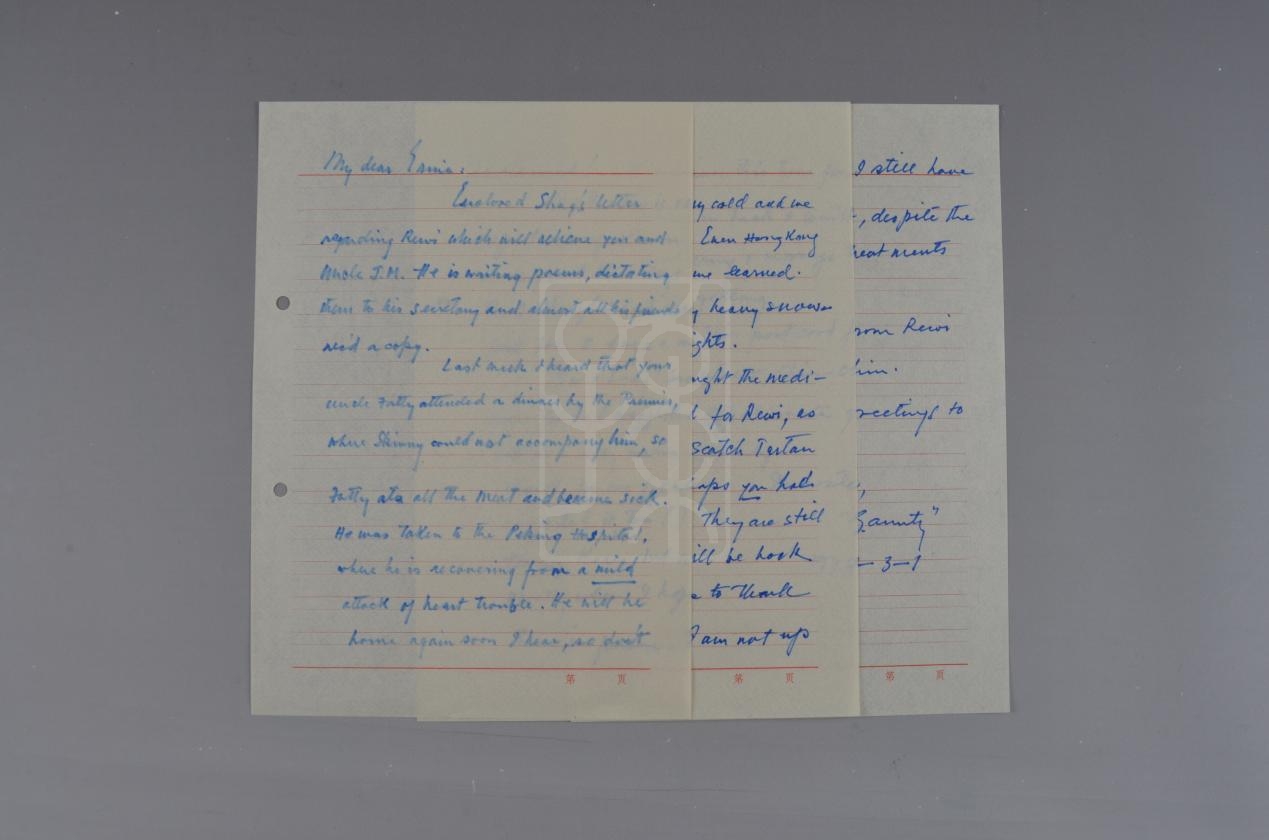 My dear Ernie:
Enclosed Shag's letter
regarding Rewi which will relieve you and
Uncle J.M. He is writing poems, dictating
them to his secretary and almost all his friends
need a copy.
Last week I heard that your
uncle Fatty attended a dinner by the Premier,
where Skinny could not accompany him, so
Fatty ate all the meat and became sick.
He was taken to the Peking Hospital,
where he is recovering from a mild
attack of heart trouble. He will be
home again soon I hear, so don't
第 页
cold and we
Even Hong Kong
we learned.
heavy snows
ghts.
ught the medi-
for Rewi, as
Scotch Tartan
aps you had
They are still
ill be back
to thank
I am not up
第 页
I still have
, despite the
reatments
rom Rewi
him.
reetings to
aunty"
-3-1
第 页